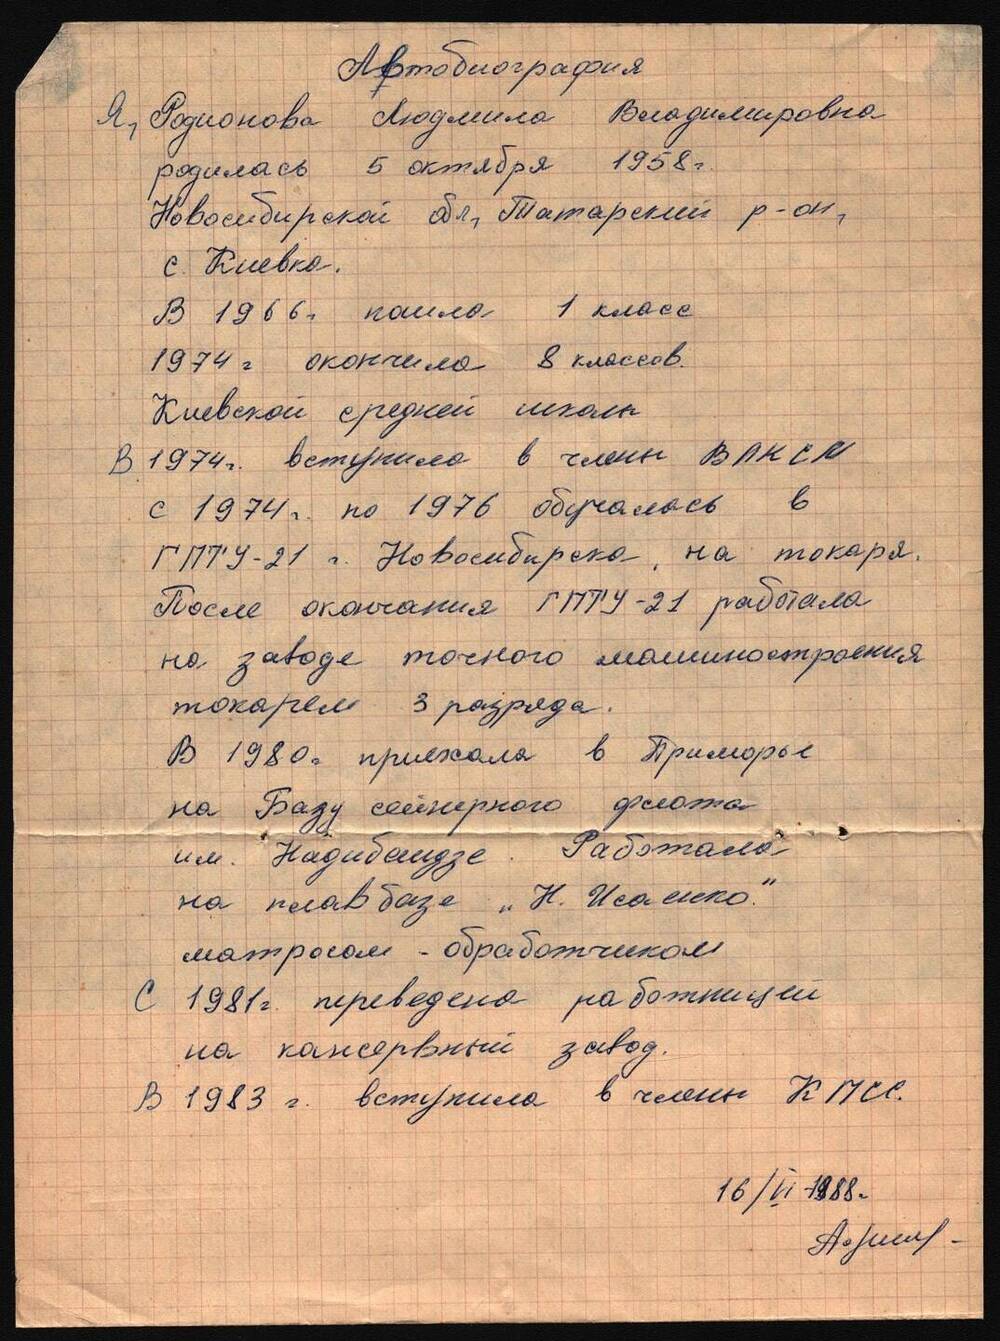 Автобиография
Я, Родионова Людмила Владимировна
родилась 5 октября 1958г.
Новосибирской обл, Татарский р-он,
с. Киевка.
В 1966г. пошла 1 класс
1974г окончила 8 классов.
Киевской средней школы
В 1974г. вступила в члены ВЛКСМ
с 1974г. по 1976 обучалась в
ГПТУ-21 г. Новосибирска, на токаря.
После окончания ГПТУ-21 работала
на заводе точного машиностроения
токарем 3 разряда.
В 1980г приехала в Приморье
на Базу сейнерного флота
им. Надибаидзе. Работала
на плавбазе „Н. Исаенко."
матросом - обработчиком
С 1981г. переведена работницей
на консервный завод.
В 1983г. вступила в члены КПСС.
16/VI-1988г.